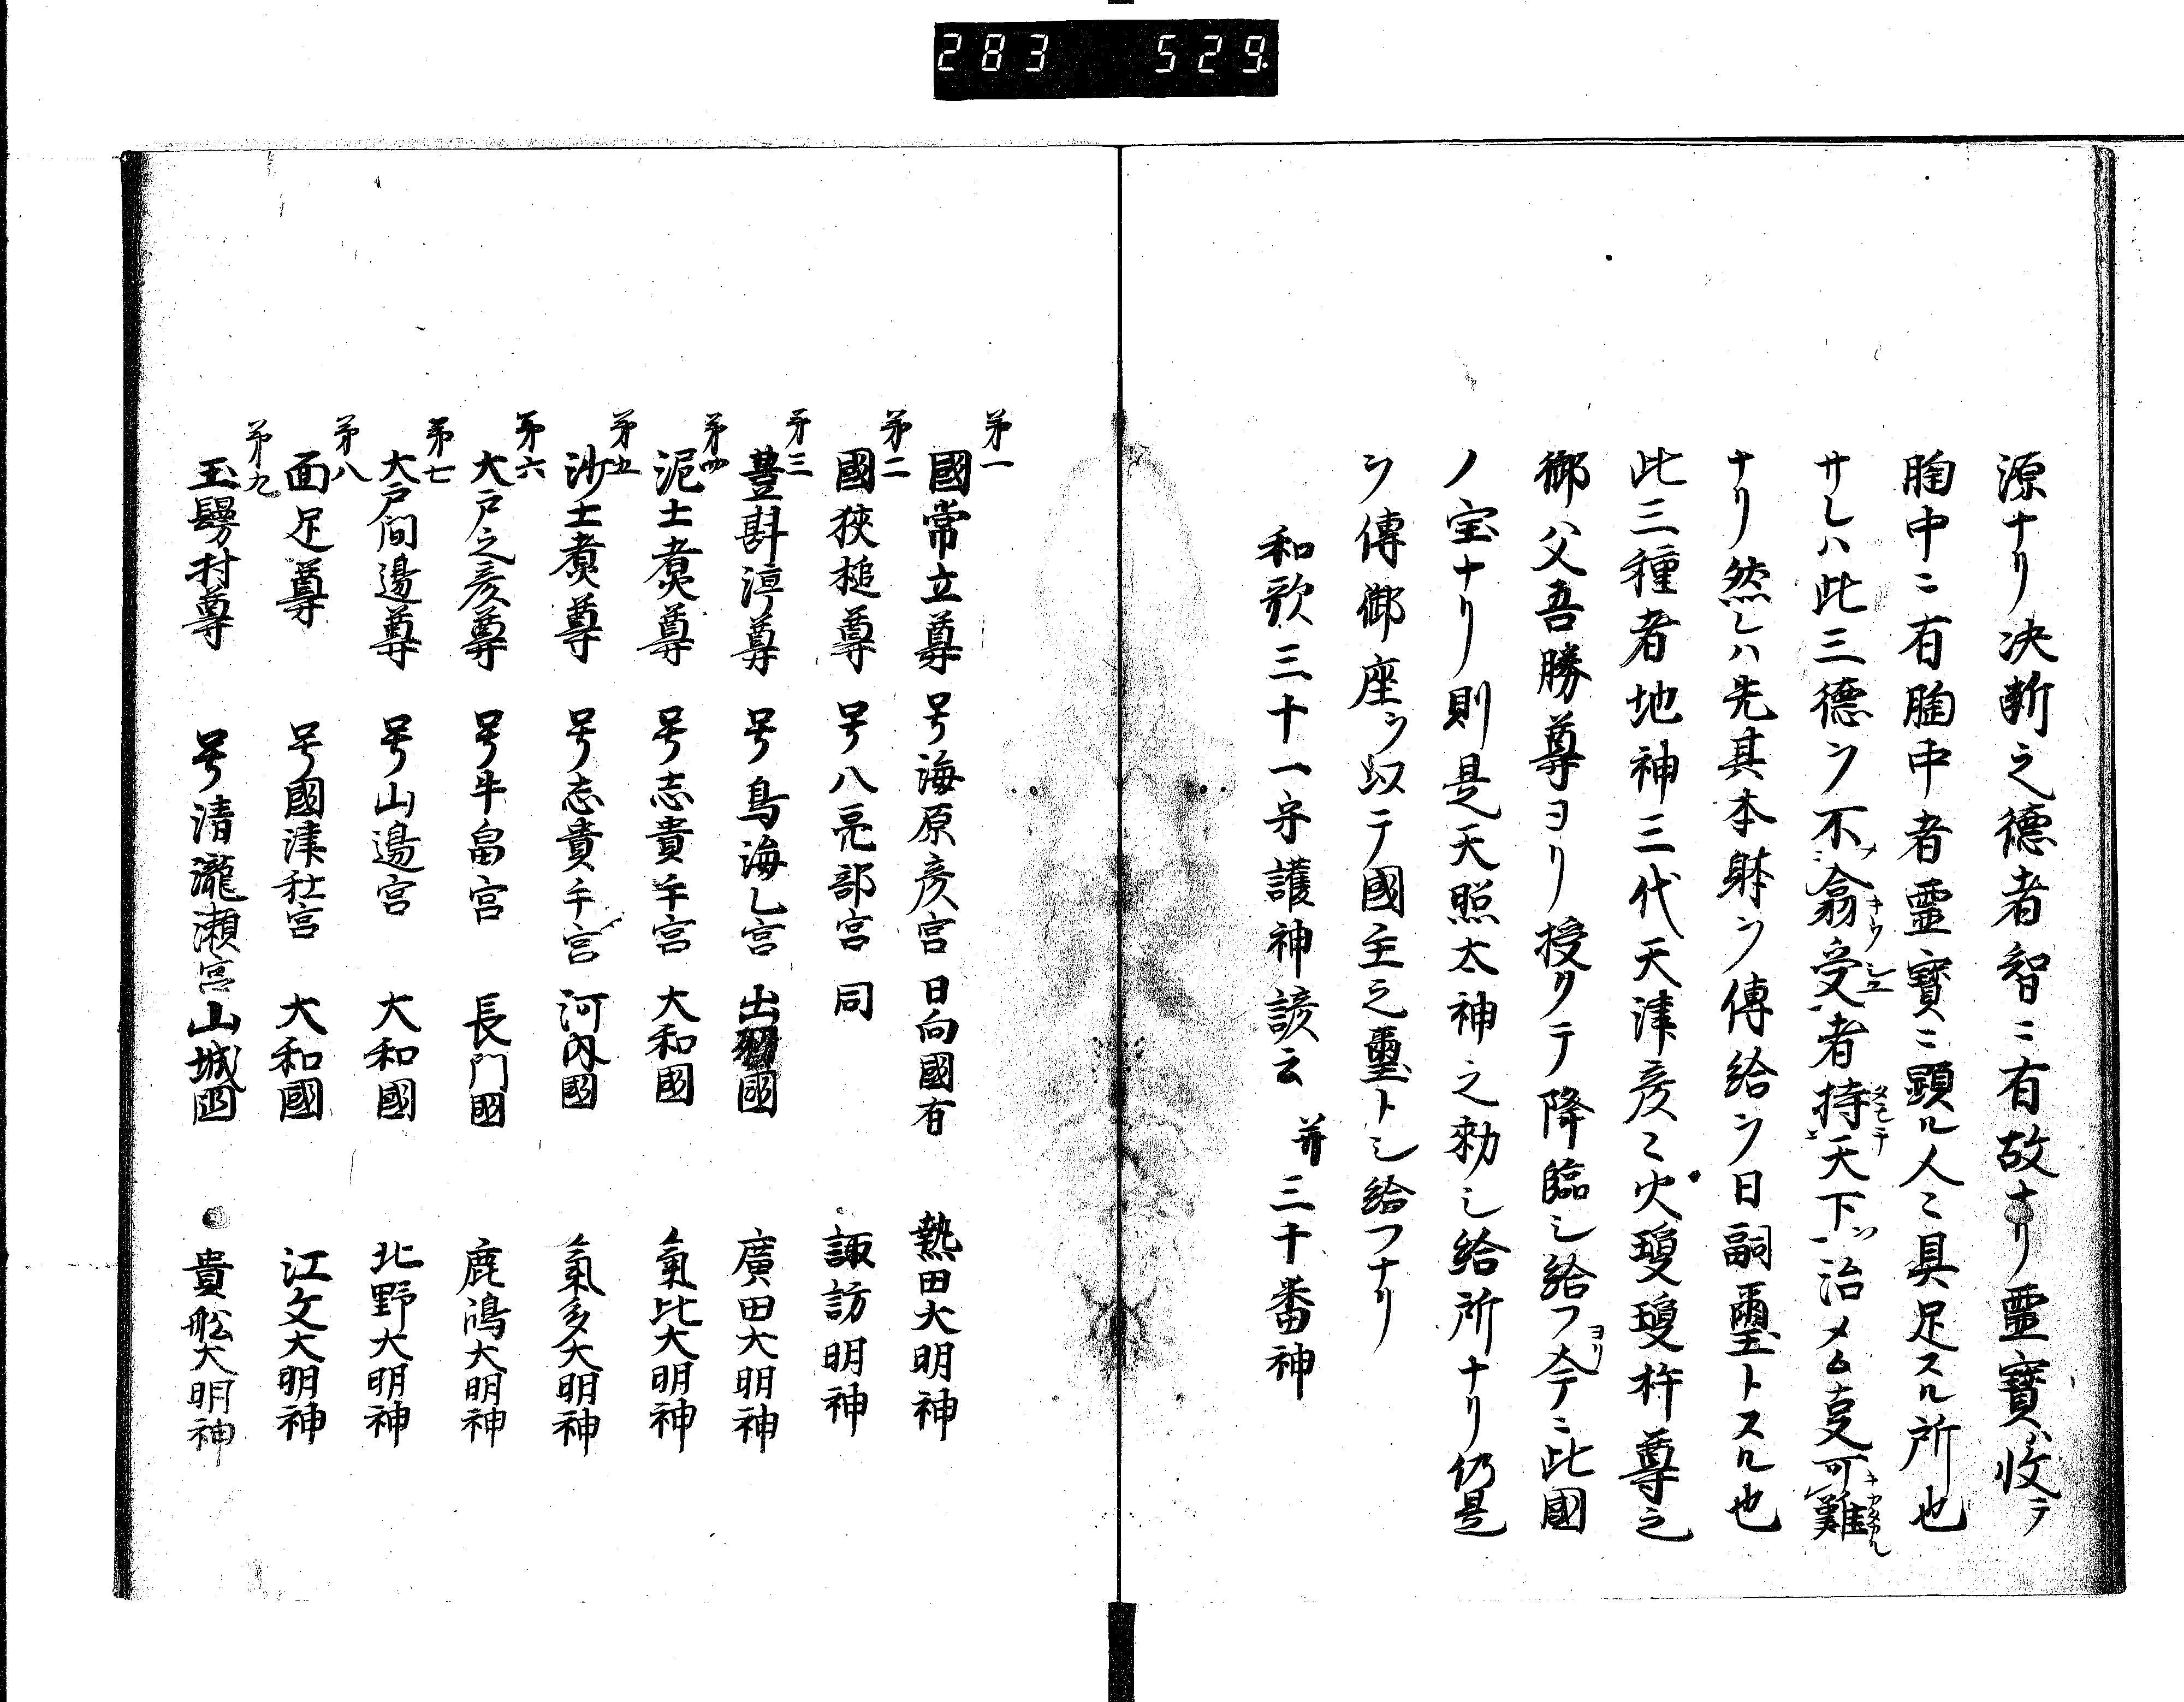 283 529.
源ナリ決断之德者智ニ有故ナリ霊寳收テ
胸中ニ有胸中者霊寳ニ顕ル人ミ具足スル所也
サレハ此三德ヲ不翕受者持天下治メム叓可難
ナリ然レハ先其本躰ヲ傳給ヲ日嗣璽トスル也
此三種者地神三代天津彦ミ火瓊瓊杵尊之
御父吾勝尊ヨリ授リテ降臨シ給フ今ニ此國
ノ宝ナリ則是天照太神之勅シ給所ナリ仍是
ヲ傳御座ヲ以テ國主之璽トシ給フナリ
和歌三十一字護神諺云 并三十番神
第一
國常立尊 号海原彦宮 日向國有 熱田大明神
第二
國狹槌尊 号八亮部宮 同 諏訪明神
第三
豊斟渟尊 号鳥海乚宮 出國 廣田大明神
第四
泥士煑尊 号志貴午宮 大和國 氣比大明神
第五
沙士煑尊 号志貴午宮 河内國 氣多大明神
第六
大戸之彦尊 号牛畠宮 長門國 鹿嶋大明神
第七
大戸間邉尊 号山邉宮 大和國 北野大明神
第八
面足尊 号國津社宮 大和國 江文大明神
第九
玉村尊 号清瀧瀬宮 山城國 貴舩大明神